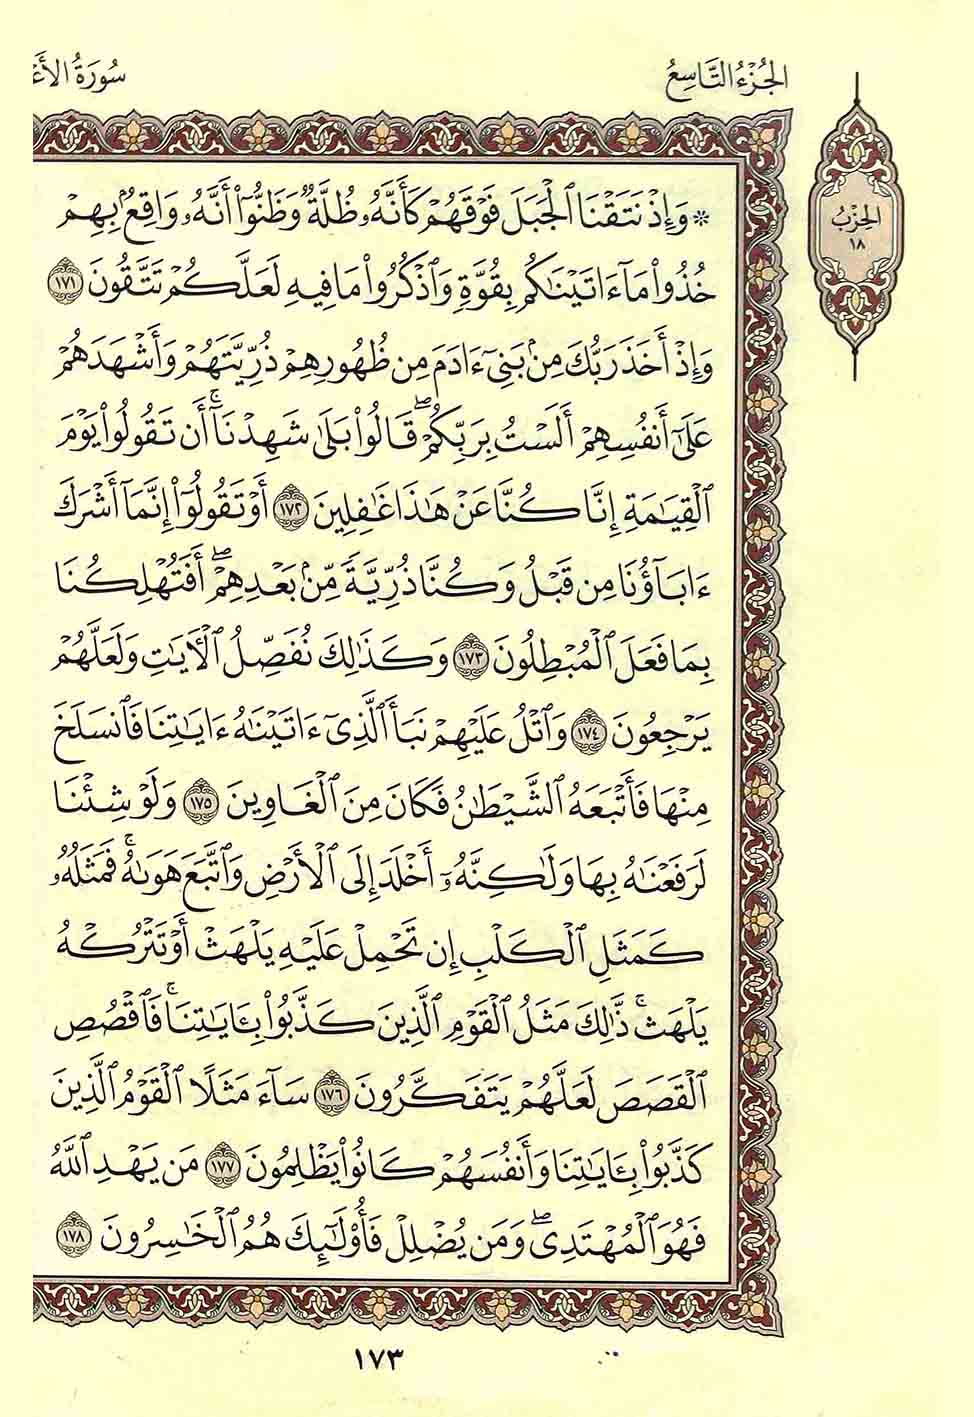 الجُزْءُ التَّاسِعُ
سُورَةُ الأَعْ
الحِزْبُ
١٨
۞ وَإِذْ نَتَقْنَا ٱلْجَبَلَ فَوْقَهُمْ كَأَنَّهُۥ ظُلَّةٌ وَظَنُّوٓا۟ أَنَّهُۥ وَاقِعٌۢ بِهِمْ
خُذُوا۟ مَآ ءَاتَيْنَٰكُم بِقُوَّةٍ وَٱذْكُرُوا۟ مَا فِيهِ لَعَلَّكُمْ تَتَّقُونَ ١٧١
وَإِذْ أَخَذَ رَبُّكَ مِنۢ بَنِىٓ ءَادَمَ مِن ظُهُورِهِمْ ذُرِّيَّتَهُمْ وَأَشْهَدَهُمْ
عَلَىٰٓ أَنفُسِهِمْ أَلَسْتُ بِرَبِّكُمْ ۖ قَالُوا۟ بَلَىٰ شَهِدْنَآ ۚ أَن تَقُولُوا۟ يَوْمَ
ٱلْقِيَٰمَةِ إِنَّا كُنَّا عَنْ هَٰذَا غَٰفِلِينَ ١٧٢ أَوْ تَقُولُوٓا۟ إِنَّمَآ أَشْرَكَ
ءَابَآؤُنَا مِن قَبْلُ وَكُنَّا ذُرِّيَّةً مِّنۢ بَعْدِهِمْ ۖ أَفَتُهْلِكُنَا
بِمَا فَعَلَ ٱلْمُبْطِلُونَ ١٧٣ وَكَذَٰلِكَ نُفَصِّلُ ٱلْءَايَٰتِ وَلَعَلَّهُمْ
يَرْجِعُونَ ١٧٤ وَٱتْلُ عَلَيْهِمْ نَبَأَ ٱلَّذِىٓ ءَاتَيْنَٰهُ ءَايَٰتِنَا فَٱنسَلَخَ
مِنْهَا فَأَتْبَعَهُ ٱلشَّيْطَٰنُ فَكَانَ مِنَ ٱلْغَاوِينَ ١٧٥ وَلَوْ شِئْنَا
لَرَفَعْنَٰهُ بِهَا وَلَٰكِنَّهُۥٓ أَخْلَدَ إِلَى ٱلْأَرْضِ وَٱتَّبَعَ هَوَىٰهُ ۚ فَمَثَلُهُۥ
كَمَثَلِ ٱلْكَلْبِ إِن تَحْمِلْ عَلَيْهِ يَلْهَثْ أَوْ تَتْرُكْهُ
يَلْهَث ۚ ذَّٰلِكَ مَثَلُ ٱلْقَوْمِ ٱلَّذِينَ كَذَّبُوا۟ بِـَٔايَٰتِنَا ۚ فَٱقْصُصِ
ٱلْقَصَصَ لَعَلَّهُمْ يَتَفَكَّرُونَ ١٧٦ سَآءَ مَثَلًا ٱلْقَوْمُ ٱلَّذِينَ
كَذَّبُوا۟ بِـَٔايَٰتِنَا وَأَنفُسَهُمْ كَانُوا۟ يَظْلِمُونَ ١٧٧ مَن يَهْدِ ٱللَّهُ
فَهُوَ ٱلْمُهْتَدِى ۖ وَمَن يُضْلِلْ فَأُو۟لَٰٓئِكَ هُمُ ٱلْخَٰسِرُونَ ١٧٨
١٧٣